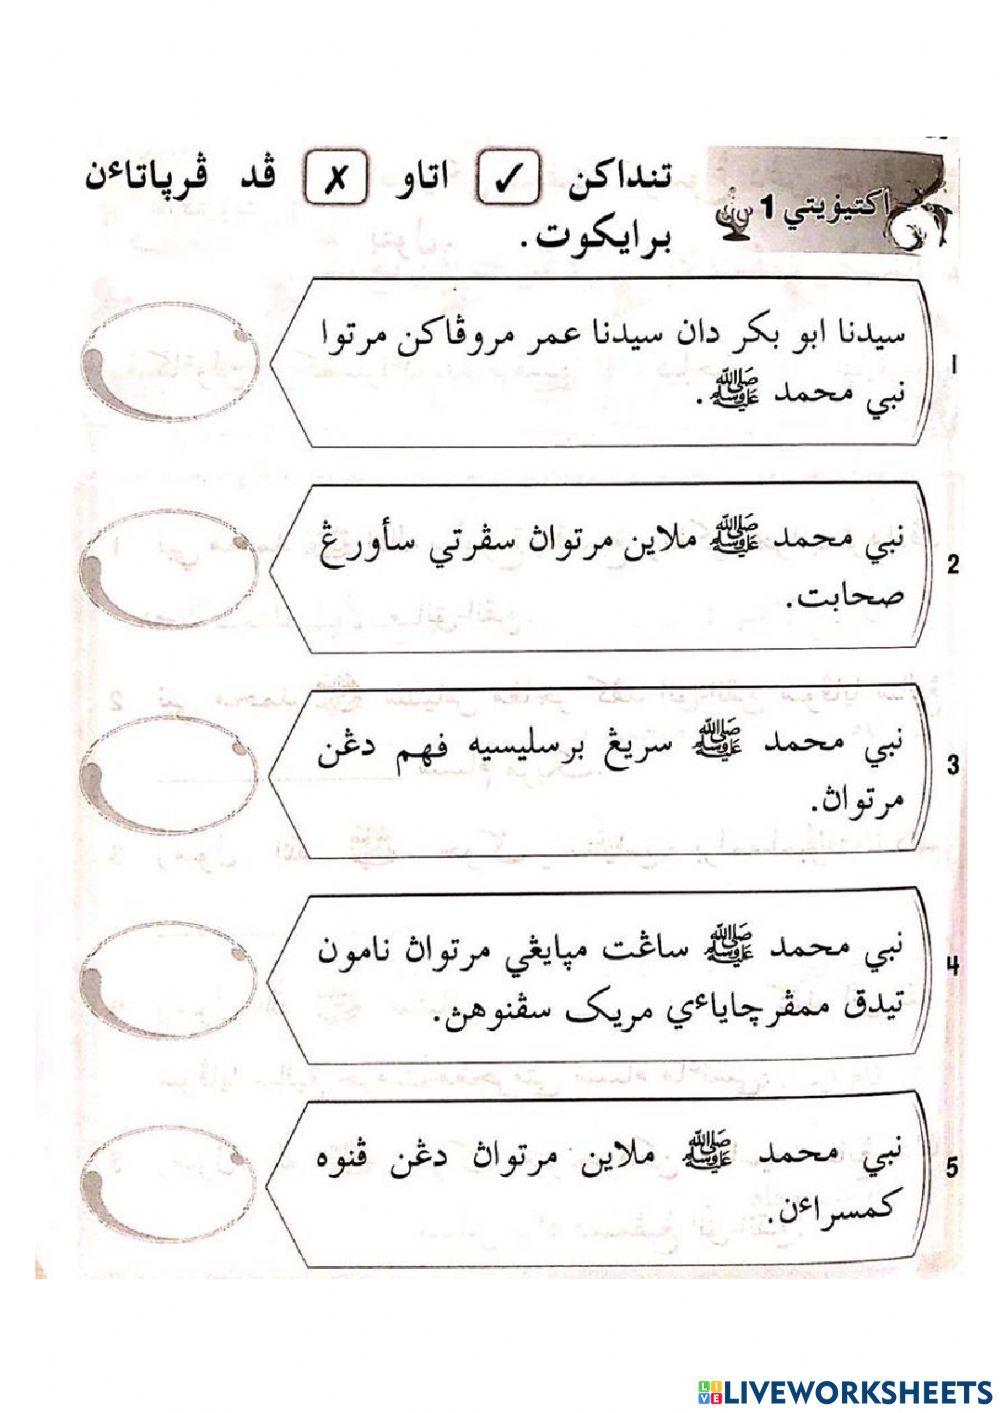 اکتيۏيتي 1
تنداکن ✓ اتاو ✗ ڤد ڤرڽاتاءن
برايکوت.
1
سيدنا ابو بکر دان سيدنا عمر مروڤاکن مرتوا
نبي محمد ﷺ.
2
نبي محمد ﷺ ملاين مرتواڽ سڤرتي سأورڠ
صحابت.
3
نبي محمد ﷺ سريڠ برسليسيه فهم دڠن
مرتواڽ.
4
نبي محمد ﷺ ساڠت مڽايڠي مرتواڽ نامون
تيدق ممڤرچاياءي مريک سڤنوهڽ.
5
نبي محمد ﷺ ملاين مرتواڽ دڠن ڤنوه
کمسراءن.
LIVEWORKSHEETS